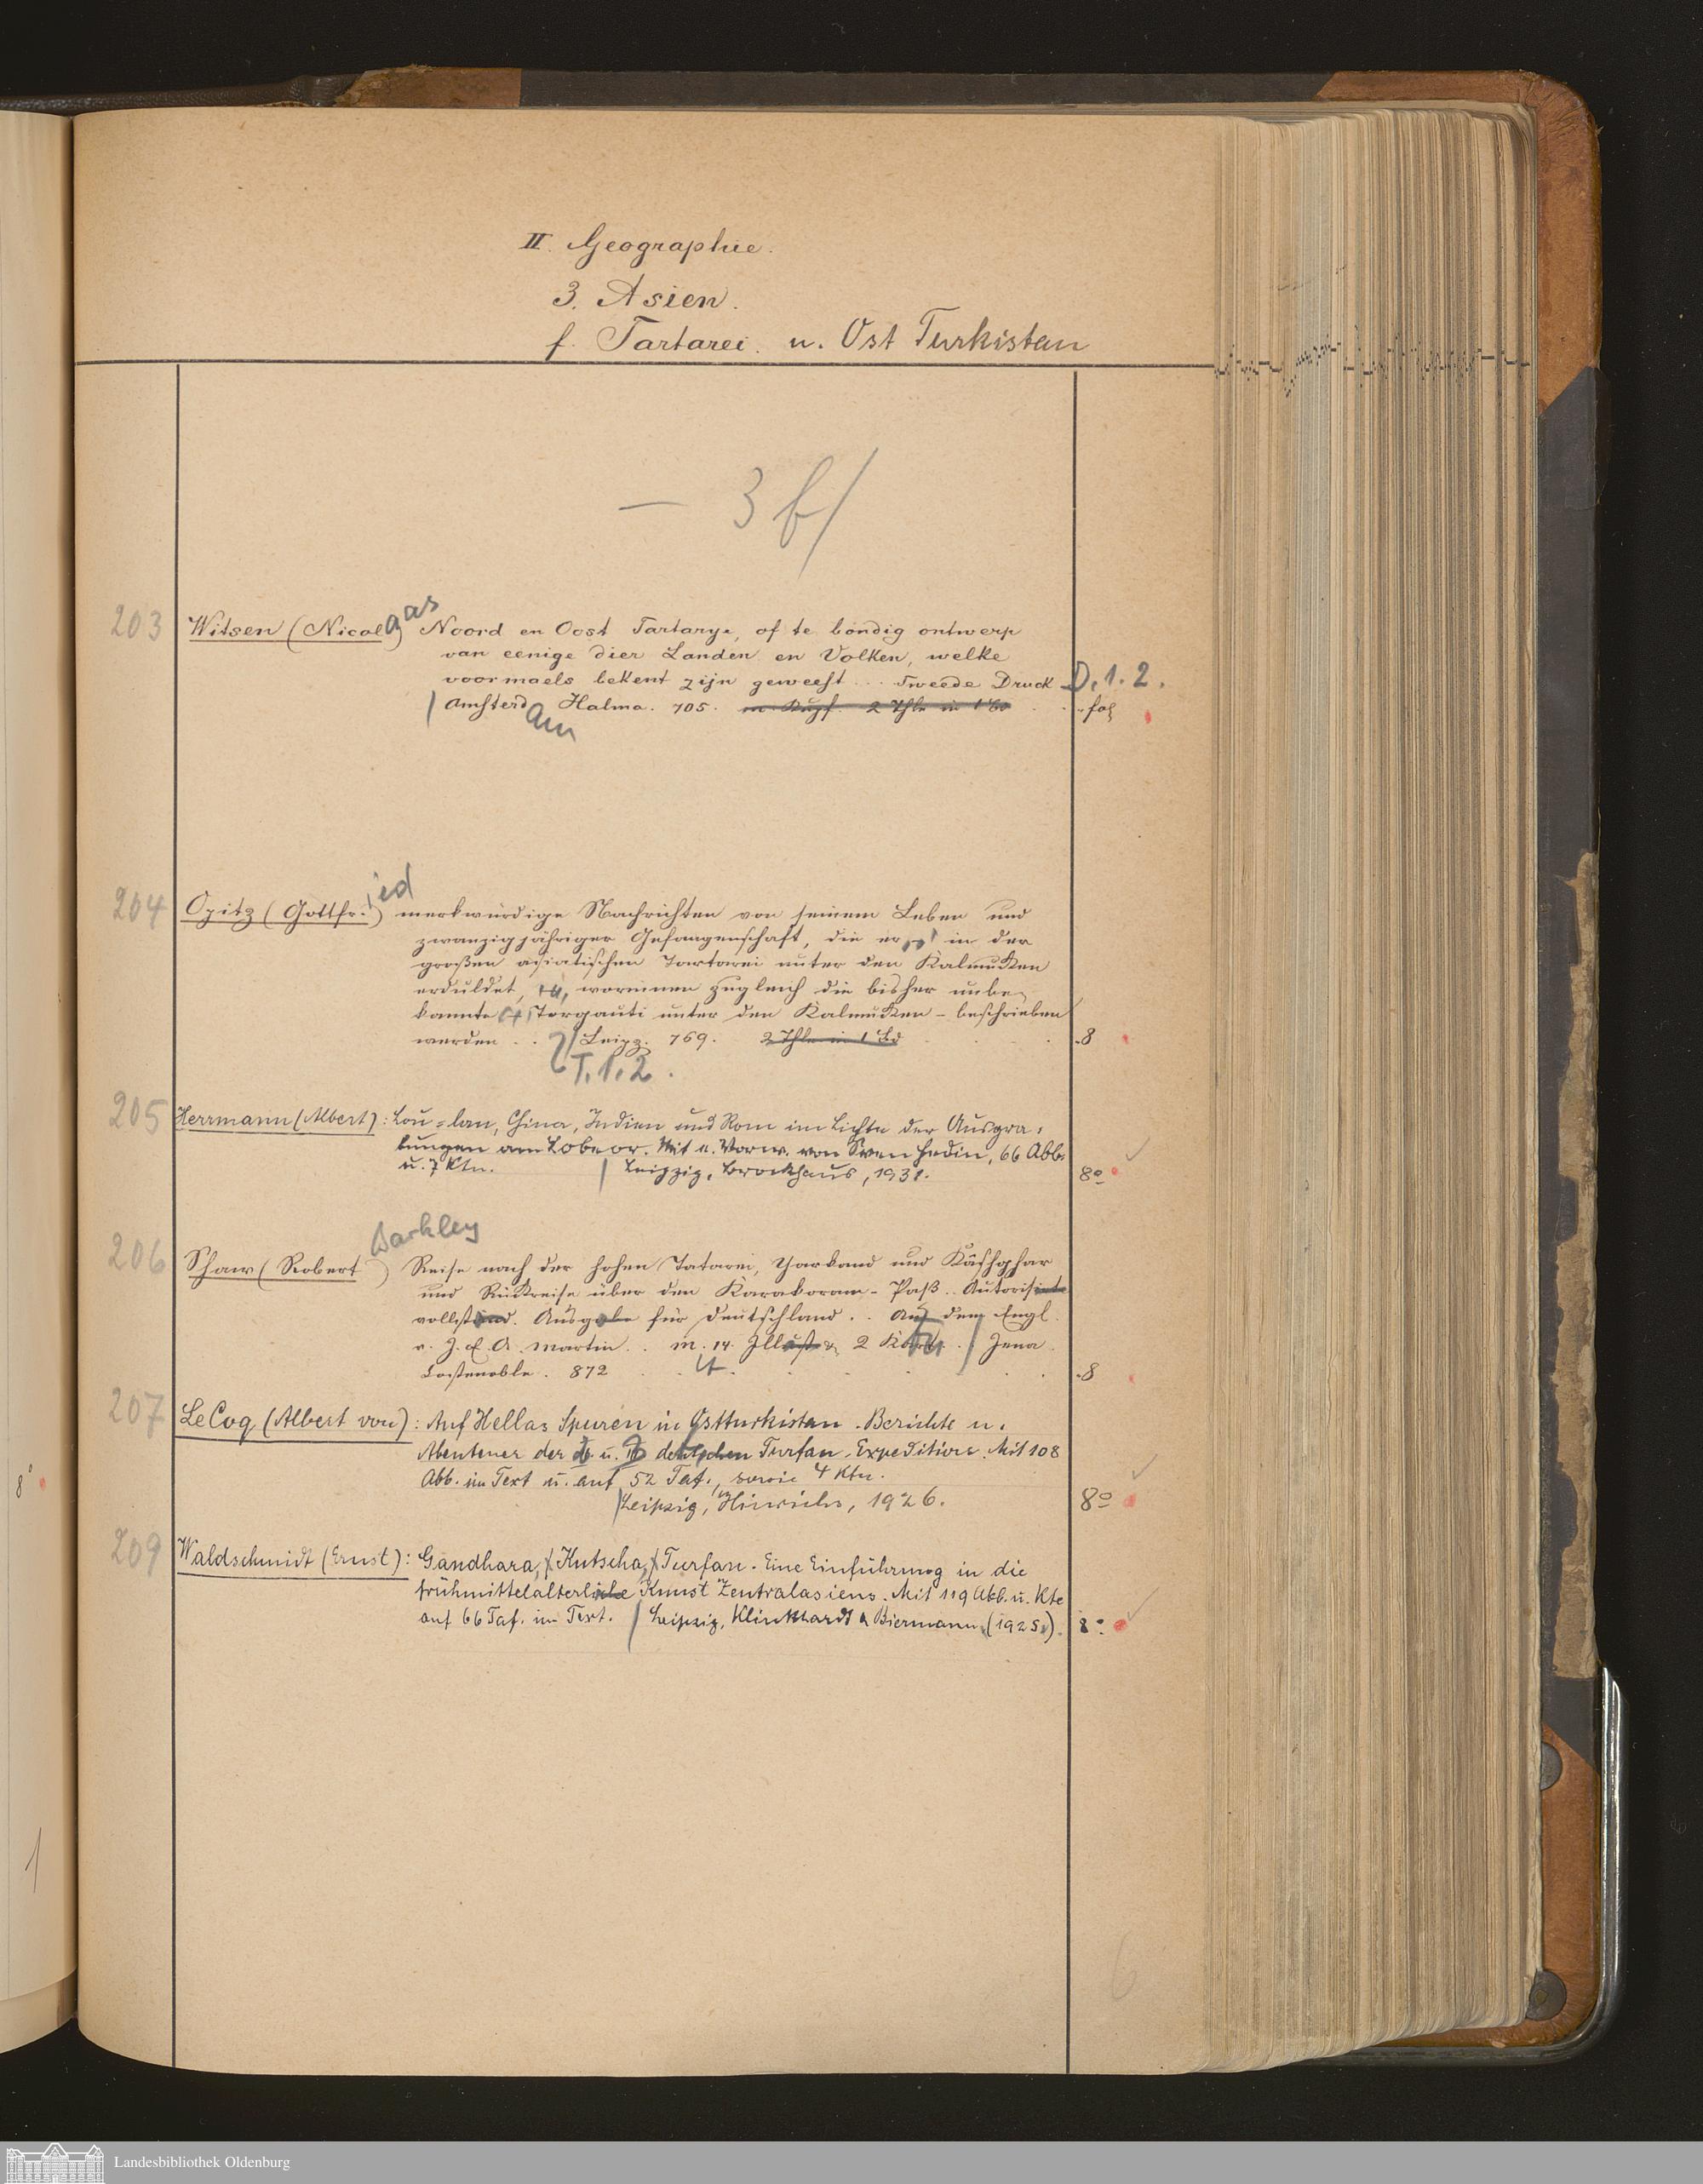 II. Geographie.
3. Asien.
f. Tartarei. u. Ost Turkistan
— 3 f/
203 Witsen (Nicolaas) Noord en Oost Tartarye, of te bondig ontwerp
van eenige dier Landen en Volken, welke
voormaels bekent zijn geweest ... Tweede Druck D. 1. 2.
/ Amsterdam Halma. 705. m. Kupf. 2 Thle in 1 Bd fol
204 Opitz (Gottfried) merkwürdige Nachrichten von seinem Leben und
zwanzigjähriger Gefangenschaft, die er in der
großen asiatischen Tartarei unter den Kalmukken
erduldet, worinnen zugleich die bisher unbe-
kannte Torgauti unter den Kalmukken - beschrieben
werden . . / Leipz. 769. 2 Thle in 1 Bd 8
T. 1. 2.
205 Herrmann (Albert): Lou-lan, China, Indien und Rom im Lichte der Ausgra-
bungen am Lobnor. Mit e. Vorw. von Sven Hedin, 66 Abb.
u. 7 Ktn. / Leipzig, Brockhaus, 1931. 8°
206 Shaw (Robert Barkley) Reise nach der hohen Tatarei, Yarkand und Kâshghar
und Rükreise über den Karakoram-Paß.. Autorisirte
vollständ. Ausgabe für Deutschland . . Aus dem Engl.
v. J. E. A. Martin . . m. 14 Illust. u. 2 Kart. / Jena
Costenoble. 872 8
207 Le Coq (Albert von): Auf Hellas Spuren in Ostturkistan. Berichte u.
Abenteuer der II. u. III. deutschen Turfan-Expedition. Mit 108
Abb. im Text u. auf 52 Taf., sowie 4 Ktn.
/ Leipzig, Hinrichs, 1926. 8°
209 Waldschmidt (Ernst): Gandhara, Kutscha, Turfan. Eine Einführung in die
frühmittelalterliche Kunst Zentralasiens. Mit 119 Abb. u. Kte
auf 66 Taf. im Text. / Leipzig, Klinkhardt & Biermann (1925). 8°
6
8°
1
Landesbibliothek Oldenburg